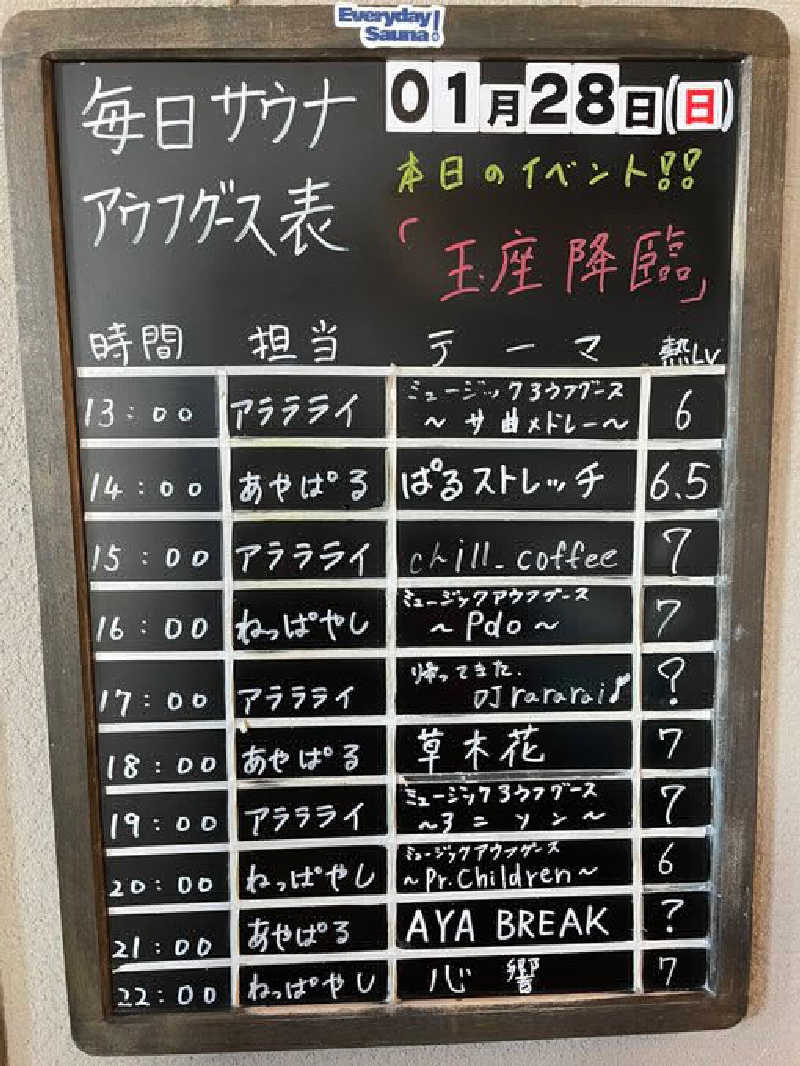 Everyday
Sauna!
毎日サウナ
アウフグース表
01月28日(日)
本日のイベント!!
「玉座降臨」
時間 担当 テーマ 熱Lv
13:00 アラララライ ミュージックアウフグース 6
～サ曲メドレー～
14:00 あやぱる ぱるストレッチ 6.5
15:00 アララライ chill_coffee 7
16:00 ねっぱやし ミュージックアウフグース 7
～Pdo～
17:00 アララライ 帰ってきた. ?
DJ rararai
18:00 あやぱる 草木花 7
19:00 アララライ ミュージックアウフグース 7
～アニソン～
20:00 ねっぱやし ミュージックアウフグース 6
～Pr.Children～
21:00 あやぱる AYA BREAK ?
22:00 ねっぱやし 心響 7